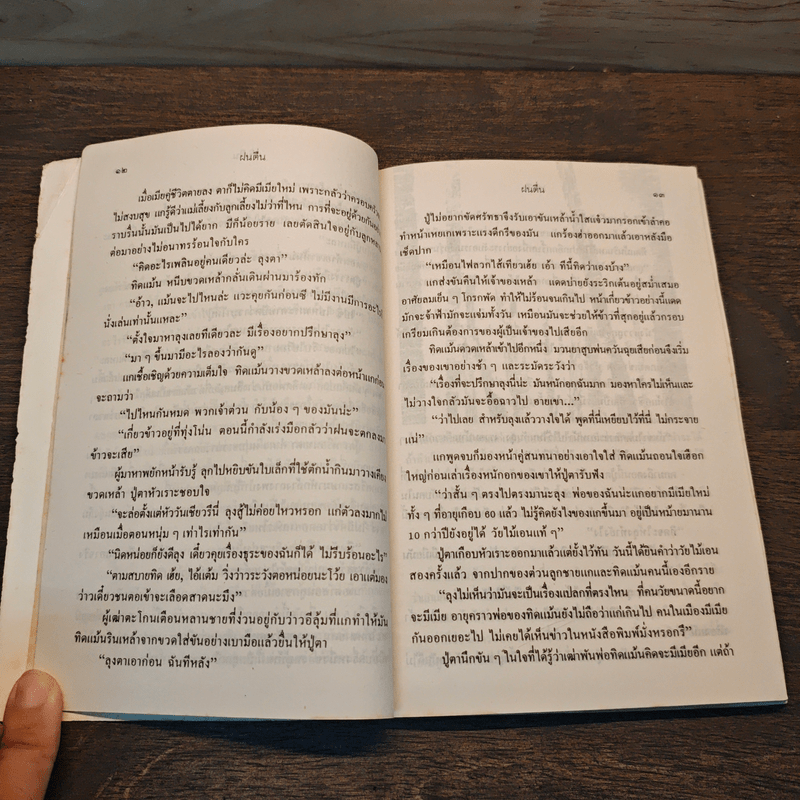 ๑๒
ฝนตื่น
เมื่อเมียคู่ชีวิตตายลง ตาก็ไม่คิดมีเมียใหม่ เพราะกลัวว่าครอบครัวจะ
ไม่สงบสุข แกรู้ดีว่าแม่เลี้ยงกับลูกเลี้ยงไม่ว่าที่ไหน การที่จะอยู่ด้วยกัน
ราบรื่นนั้นมันเป็นไปได้ยาก มีก็น้อยราย เลยตัดสินใจอยู่กับลูกหลาน
ต่อมาอย่างไม่อนาทรร้อนใจกับใคร
“คิดอะไรเพลินอยู่คนเดียวล่ะ ลุงตา”
ทิดแม้น หนีบขวดเหล้ากลั่นเดินผ่านมาร้องทัก
“อ้าว, แม้นจะไปไหนล่ะ แวะคุยกันก่อนซี ไม่มีงานมีการอะไร
นั่งเล่นเท่านั้นแหละ”
“ตั้งใจมาหาลุงเลยทีเดียวละ มีเรื่องอยากปรึกษาลุง”
“มา ๆ ขึ้นมามีอะไรลองว่ากันดู”
แกเชื้อเชิญด้วยความเต็มใจ ทิดแม้นวางขวดเหล้าลงต่อหน้าแกก่อน
จะถามว่า
“ไปไหนกันหมด พวกเจ้าต่วน กับน้อง ๆ ของมันน่ะ”
“เกี่ยวข้าวอยู่ที่ทุ่งโน่น ตอนนี้กำลังเร่งมือกลัวว่าฝนจะตกลงมา
ข้าวจะเสีย”
ผู้มาหาพยักหน้ารับรู้ ลุกไปหยิบขันใบเล็กที่ใช้ตักน้ำกินมาวางเคียง
ขวดเหล้า ปู่ตาหัวเราะชอบใจ
“จะล่อตั้งแต่หัววันเชียวรึนี่ ลุงสู้ไม่ค่อยไหวหรอก แก่ตัวลงมากไม่
เหมือนเมื่อตอนหนุ่ม ๆ เท่าไรเท่ากัน”
“นิดหน่อยก็ยังดีลุง เดี๋ยวคุยเรื่องธุระของฉันก็ได้ ไม่รีบร้อนอะไร”
“ตามสบายทิด เฮ้ย, ไอ้แต้ม วิ่งว่าวระวังตอหน่อยนะโว้ย เอาแต่มอง
ว่าวเดี๋ยวชนตอเข้าจะเลือดสาดนะมึง”
ผู้เฒ่าตะโกนเตือนหลานชายที่ง่วนอยู่กับว่าวอีลุ้มที่แกทำให้มัน
ทิดแม้นรินเหล้าจากขวดใส่ขันอย่างเบามือแล้วยื่นให้ปู่ตา
“ลุงตาเอาก่อน ฉันทีหลัง”
ฝนตื่น
๑๓
ปู่ไม่อยากขัดศรัทธาจึงรับเอาขันเหล้าน้ำใสแจ๋วมากรอกเข้าลำคอ
ทำหน้าเหยเกเพราะแรงดีกรีของมัน แกร้องฮ่าออกมาแล้วเอาหลังมือ
เช็ดปาก
“เหมือนไฟลวกไส้เทียวเฮ้ย เอ้า ทีนี้ทิดว่าเองบ้าง”
แกส่งขันคืนให้เจ้าของเหล้า แดดบ่ายยังระริกเต้นอยู่สม่ำเสมอ
อาศัยลมเย็น ๆ โกรกพัด ทำให้ไม่ร้อนจนเกินไป หน้าเกี่ยวข้าวอย่างนี้แดด
มักจะจ้าฟ้ามักจะแจ่มทั้งวัน เหมือนมันจะช่วยให้ข้าวที่สุกอยู่แล้วกรอบ
เกรียมเกินต้องการของผู้เป็นเจ้าของไปเสียอีก
ทิดแม้นดวดเหล้าเข้าไปอีกหนึ่ง มวนยาสูบพ่นควันฉุยเสียก่อนจึงเริ่ม
เรื่องของเขาอย่างช้า ๆ และระมัดระวังว่า
“เรื่องที่จะปรึกษาลุงนี่น่ะ มันหนักอกฉันมาก มองหาใครไม่เห็นและ
ไม่วางใจกลัวมันจะอื้อฉาวไป อายเขา...”
“ว่าไปเลย สำหรับลุงแล้ววางใจได้ พูดที่นี่เหยียบไว้ที่นี่ ไม่กระจาย
แน่”
แกพูดจบก็มองหน้าคู่สนทนาอย่างเอาใจใส่ ทิดแม้นถอนใจเฮือก
ใหญ่ก่อนเล่าเรื่องหนักอกของเขาให้ปู่ตารับฟัง
“ว่าสั้น ๆ ตรงไปตรงมานะลุง พ่อของฉันน่ะแกอยากมีเมียใหม่
ทั้ง ๆ ที่อายุเกือบ 60 แล้ว ไม่รู้คิดยังไงของแกขึ้นมา อยู่เป็นหม้ายมานาน
10 กว่าปียังอยู่ได้ วัยไม้เอนแท้ ๆ”
ปู่ตาเกือบหัวเราะออกมาแล้วแต่ยั้งไว้ทัน วันนี้ได้ยินคำว่าวัยไม้เอน
สองครั้งแล้ว จากปากของต่วนลูกชายแกและทิดแม้นคนนี้เองอีกราย
“ลุงไม่เห็นว่ามันจะเป็นเรื่องแปลกที่ตรงไหน ที่คนวัยขนาดนี้อยาก
จะมีเมีย อายุคราวพ่อของทิดแม้นยังไม่ถือว่าแก่เกินไป คนในเมืองมีเมีย
กันออกเยอะไป ไม่เคยได้เห็นข่าวในหนังสือพิมพ์มั่งหรอกรึ”
ปู่ตานึกขัน ๆ ในใจที่ได้รู้ว่าเฒ่าพันพ่อทิดแม้นคิดจะมีเมียอีก แต่ถ้า